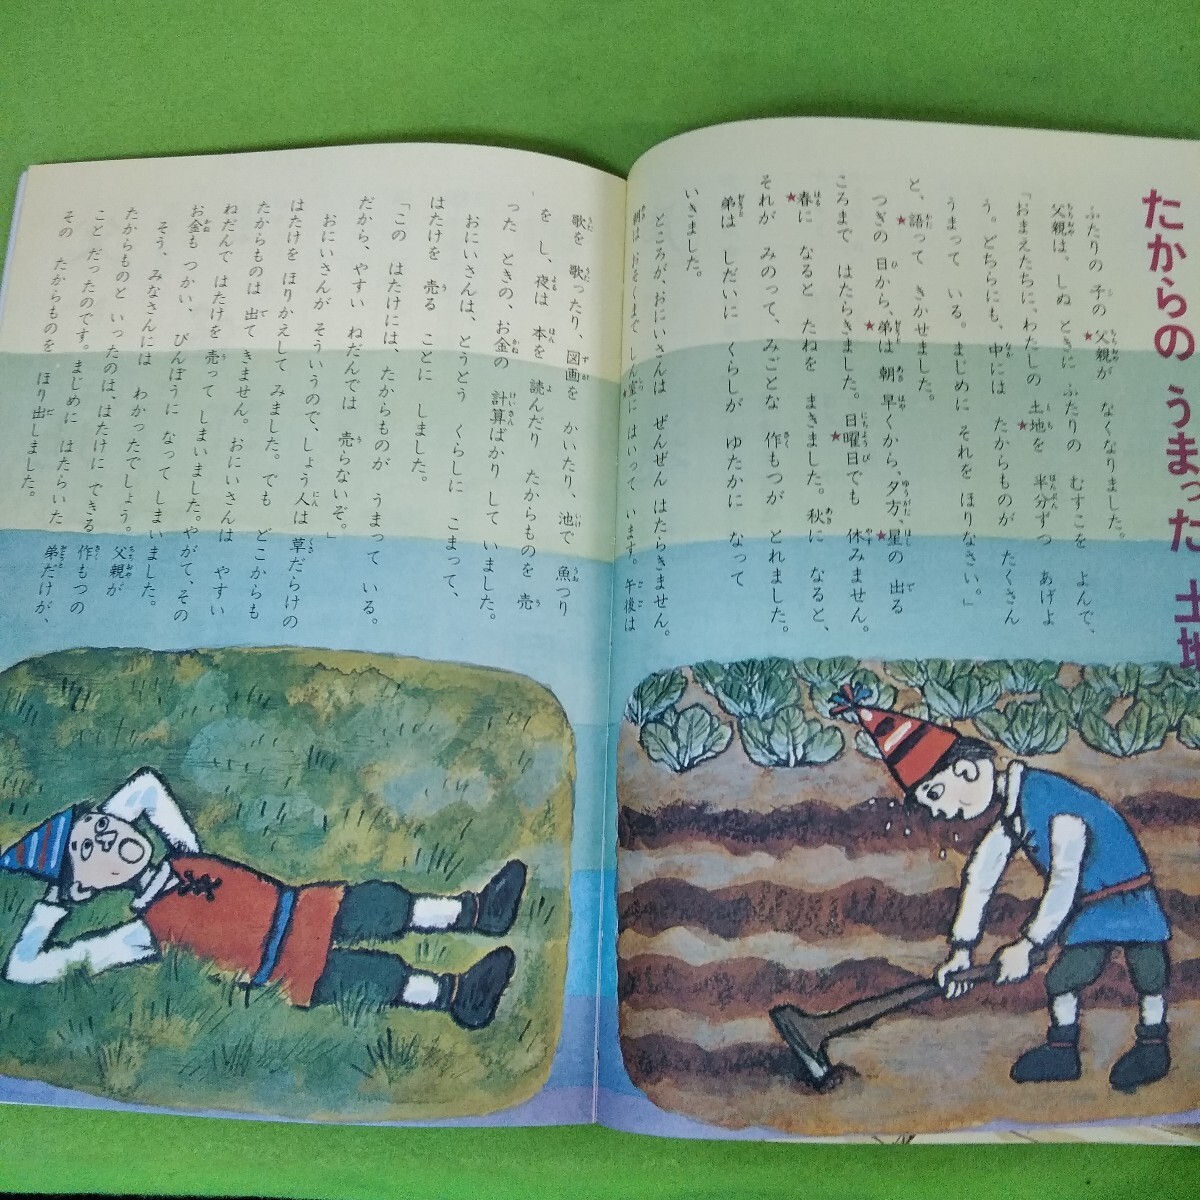 たからの うまった 土地
ふたりの 子の 父親が なくなりました。
父親は、しぬ ときに ふたりの むすこを よんで、
「おまえたちに、わたしの 土地を 半分ずつ あげよ
う。どちらにも、中には たからものが たくさん
うまって いる。まじめに それを ほりなさい。」
と、語って きかせました。
つぎの 日から、弟は 朝 早くから、夕方、星の 出る
ころまで はたらきました。日曜日でも 休みません。
春に なると たねを まきました。秋に なると、
それが みのって、みごとな 作もつが とれました。
弟は しだいに くらしが ゆたかに なって
いきました。
ところが、おにいさんは ぜんぜん はたらきません。
朝は おそくまで しん室に はいって います。午後は
歌を 歌ったり、図画を かいたり、池で 魚つり
を し、夜は 本を 読んだり たからものを 売
った ときの、お金の 計算ばかり して いました。
おにいさんは、とうとう くらしに こまって、
はたけを 売る ことに しました。
「この はたけには、たからものが うまって いる。
だから、やすい ねだんでは 売らないぞ。」
おにいさんが そういうので、しょう人は 草だらけの
はたけを ほりかえして みました。でも どこからも
たからものは 出て きません。おにいさんは やすい
ねだんで はたけを 売って しまいました。やがて、その
お金も つかい、びんぼうに なって しまいました。
そう、みなさんには わかったでしょう。父親が
たからものと いったのは、はたけに できる 作もつの
こと だったのです。まじめに はたらいた 弟だけが、
その たからものを ほり出しました。